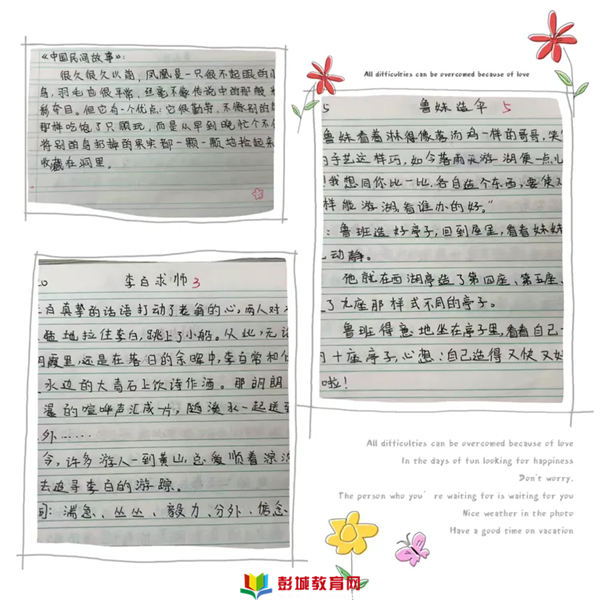 《中国民间故事》：
很久很久以前，凤凰是一只很不起眼的小
鸟，羽毛也很平常，丝毫不像传说中的那般
夺目。但它有一个优点：它很勤劳，不像别的
那样吃饱了只顾玩，而是从早到晚忙个不
将别的鸟扔掉的果实都一颗一颗地捡起来
收藏在洞里。
All difficulties can be overcomed because of love
5 鲁妹造伞 5
鲁妹看着淋得像落汤鸡一样的哥哥，笑
手艺这样巧，如今落雨天游湖便一点儿
我想同你比一比，各自造个东西，要使
样能游湖，看谁办的好。”
：鲁班造好亭子，回到屋里，看看妹妹
动静。
他就在西湖亭造了第四座、第五座、
了九座那样式不同的亭子。
鲁班得意地坐在亭子里，看看自己
十座亭子，心想：自己造得又快又好
啦！
李白求师 3
白真挚的话语打动了老翁的心，两人对
地拉住李白，跳上了小船。从此，无论
霞里，还是在落日的余晖中，李白常和
水边的大青石上饮诗作酒。那朗朗
湿的喧哗声汇成一片，随溪水一起送
外……
今，许多游人一到黄山，总爱顺着淙
去追寻李白的游踪。
词：湍急、丛丛、毅力、分外、信念
All difficulties can be overcomed because of love
In the days of fun looking for happiness
Don't worry.
The person who you're waiting for is waiting for you
Nice weather in the photo
Have a good time on vacation
彭城教育网